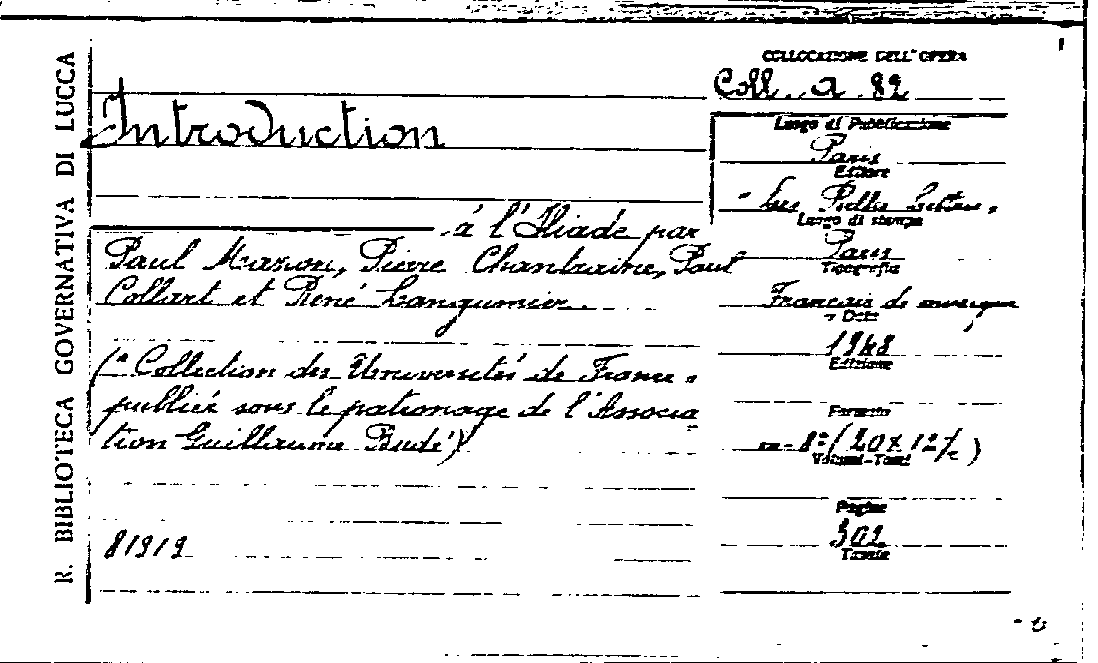 R. BIBLIOTECA GOVERNATIVA DI LUCCA
Introduction
à l'Iliade par
Paul Mazon, Pierre Chantraine, Paul
Collart et René Langumier.
("Collection des Universités de France"
publiée sous le patronage de l'Associa
tion Guillaume Budé")
81919
COLLOCAZIONE DELL'OPERA
Coll. a. 82
Luogo di Pubblicazione
Paris
Editore
"Les Belles Lettres"
Luogo di stampa
Paris
Tipografia
Français de
Data
1948
Edizione
Formato
in-8° (20x12/c)
Volumi-Tomi
Pagine
302
Tavole